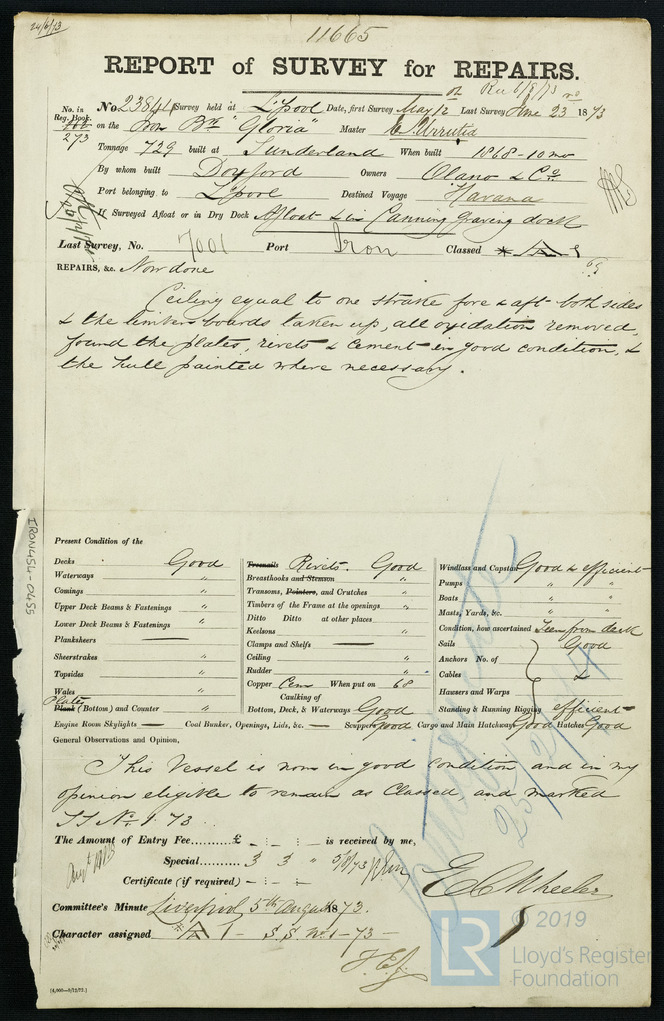 24/6/73
11665
REPORT of SURVEY for REPAIRS.
Rec 6/8/73
No. in Reg. Book. 273
No. 23844 Survey held at L'pool Date, first Survey May 12 Last Survey June 23 1873
on the Iron Bk "Gloria" Master C. Urrutia
Tonnage 729 built at Sunderland When built 1868-10 mo
By whom built Doxford Owners Olano & Co.
Port belonging to L'pool Destined Voyage Havana
If Surveyed Afloat or in Dry Dock Afloat & in Canning graving dock
Last Survey, No. 7001 Port Iron Classed A
REPAIRS, &c. Now done
Ceiling equal to one strake fore & aft both sides
& the limber boards taken up, all oxidation removed,
found the plates, rivets & cement in good condition, &
the hull painted where necessary.
IRON454-0455
Present Condition of the
Decks Good
Waterways "
Comings "
Upper Deck Beams & Fastenings "
Lower Deck Beams & Fastenings "
Planksheers —
Sheerstrakes "
Topsides "
Wales "
Plates
Plank (Bottom) and Counter "
Treenails Rivets. Good
Breasthooks and Stemson "
Transoms, Pointers, and Crutches "
Timbers of the Frame at the openings "
Ditto Ditto at other places "
Keelsons "
Clamps and Shelfs —
Ceiling "
Rudder "
Copper Cem When put on 68
Caulking of
Bottom, Deck, & Waterways Good
Windlass and Capstan Good & efficient
Pumps " "
Boats " "
Masts, Yards, &c. " "
Condition, how ascertained Seen from deck
Sails Good
Anchors No. of
Cables &
Hawsers and Warps
Standing & Running Rigging efficient
Engine Room Skylights — Coal Bunker, Openings, Lids, &c. — Scuppers Good Cargo and Main Hatchways Good Hatches Good
General Observations and Opinion,
This Vessel is now in good condition and in my
opinion eligible to remain as Classed and marked
SS No 1. 73.
The Amount of Entry Fee..........£ - : - : - is received by me,
Special.......... 3 3 " 5/8/73
Certificate (if required) - : - : -
E C Wheeler
Committee's Minute Liverpool 5th August 1873.
Character assigned A 1 - S.S. No 1-73-
© 2019
LR
Lloyd's Register
Foundation